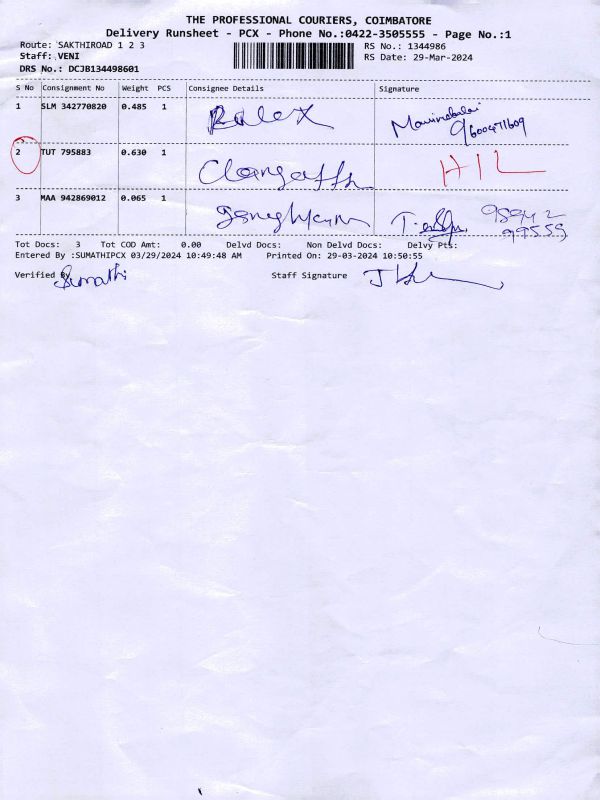 THE PROFESSIONAL COURIERS, COIMBATORE
Delivery Runsheet - PCX - Phone No.:0422-3505555 - Page No.:1
Route: SAKTHIROAD 1 2 3 RS No.: 1344986
Staff: VENI RS Date: 29-Mar-2024
DRS No.: DCJB134498601
S No Consignment No Weight PCS Consignee Details Signature
1 SLM 342770820 0.485 1 Rolex
2 TUT 795883 0.630 1
3 MAA 942869012 0.065 1
Tot Docs: 3 Tot COD Amt: 0.00 Delvd Docs: Non Delvd Docs: Delvy Pts:
Entered By :SUMATHIPCX 03/29/2024 10:49:48 AM Printed On: 29-03-2024 10:50:55
Verified By Sumathi Staff Signature